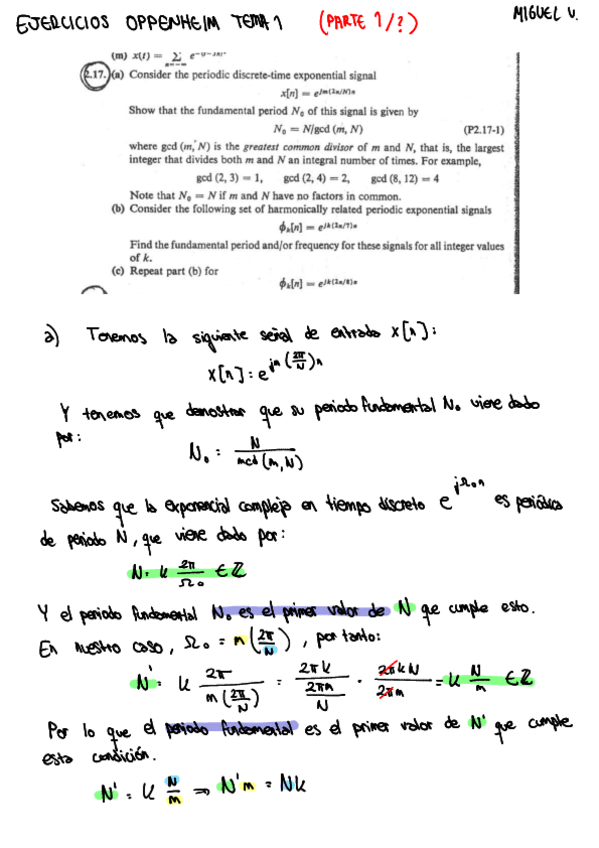 EJERCICIOS OPPENHEIM TEMA 1 (PARTE 1/?) MIGUEL V.
(m) x(t) = Σ
2.17. (a) Consider the periodic discrete-time exponential signal
x[n] = e^{jm(2π/N)n}
Show that the fundamental period N₀ of this signal is given by
N₀ = N/gcd (m, N) (P2.17-1)
where gcd (m, N) is the greatest common divisor of m and N, that is, the largest
integer that divides both m and N an integral number of times. For example,
gcd (2, 3) = 1, gcd (2, 4) = 2, gcd (8, 12) = 4
Note that N₀ = N if m and N have no factors in common.
(b) Consider the following set of harmonically related periodic exponential signals
ϕₖ[n] = e^{jk(2π/7)n}
Find the fundamental period and/or frequency for these signals for all integer values
of k.
(c) Repeat part (b) for
ϕₖ[n] = e^{jk(2π/8)n}
a) Tenemos la siguiente señal de entrada x[n]:
x[n] : e^{jm(2π/N)n}
Y tenemos que demostrar que su periodo fundamental N₀ viene dado
por:
N₀ : N / mcd(m,N)
Sabemos que la exponencial compleja en tiempo discreto e^{jΩ₀n} es periódica
de periodo N, que viene dado por:
N = k 2π/Ω₀ ∈ ℤ
Y el periodo fundamental N₀ es el primer valor de N que cumple esto.
En nuestro caso, Ω₀ = m(2π/N), por tanto:
N' = k 2π/(m(2π/N)) = 2πk/(2πm/N) · 2πkN/2πm = k N/m ∈ ℤ
Por lo que el periodo fundamental es el primer valor de N' que cumple
esta condición.
N' = k N/m ⇒ N'm = Nk